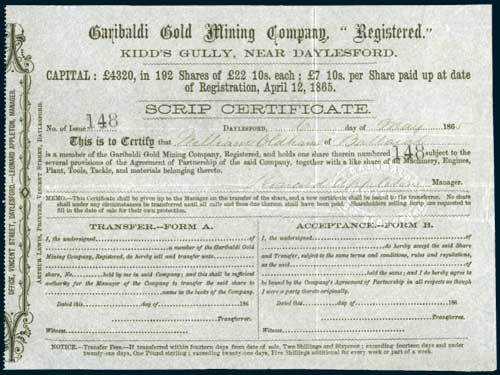 Garibaldi Gold Mining Company, "Registered."
KIDD'S GULLY, NEAR DAYLESFORD.
CAPITAL: £4320, in 192 Shares of £22 10s. each; £7 10s. per Share paid up at date
of Registration, April 12, 1865.
SCRIP CERTIFICATE.
No. of Issue 148 DAYLESFORD, day of 186
This is to Certify that William Oldham of
is a member of the Garibaldi Gold Mining Company, Registered, and holds one share therein numbered 148 subject to the
several provisions of the Agreement of Partnership of the said Company, together with a like share of all Machinery, Engines,
Plant, Tools, Tackle, and materials belonging thereto.
Leonard Appleton Manager.
MEMO.—This Certificate shall be given up to the Manager on the transfer of the share, and a new certificate shall be issued to the transferree. No share
shall under any circumstances be transferred until all calls and fines due thereon, shall have been paid. Shareholders selling Scrip are requested to
fill in the date of sale for their own protection.
TRANSFER.—FORM A.
I, the undersigned of
a member of the Garibaldi Gold
Mining Company, Registered, do hereby sell and transfer unto
of
share, No. held by me in said Company; and this shall be sufficient
authority for the Manager of the Company to transfer the said share to
name in the books of the Company.
Dated this day of 186
Transferror.
Witness
ACCEPTANCE.—FORM B.
I, the undersigned
of do hereby accept the said Share
and Transfer, subject to the same terms and conditions, rules and regulations,
as the said
held the same; and I do hereby agree to
be bound by the Company's Agreement of Partnership in all respects as though
I were a party thereto originally.
Dated this day of 186
Transferree.
Witness
NOTICE.—Transfer Fees.—If transferred within fourteen days from date of sale, Two Shillings and Sixpence; exceeding fourteen days and under
twenty-one days, One Pound sterling; exceeding twenty-one days, Five Shillings additional for every week or part of a week.
OFFICE, VINCENT STREET, DAYLESFORD.—LEONARD APPLETON, MANAGER.
ARTHUR LEWIS, PRINTER, VINCENT STREET, DAYLESFORD.